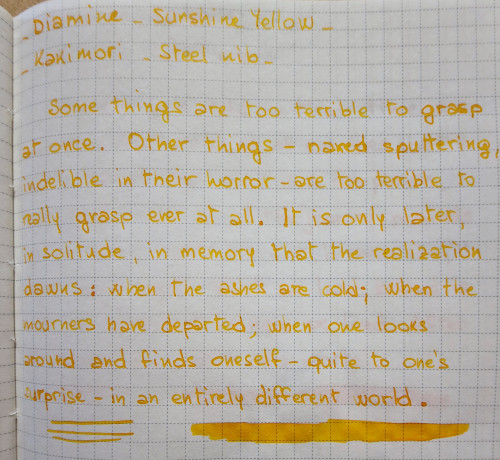 - Diamine - Sunshine Yellow -
- Kakimori - Steel nib -
Some things are too terrible to grasp
at once. Other things - naked sputtering,
indelible in their horror - are too terrible to
really grasp ever at all. It is only later,
in solitude, in memory that the realization
dawns: when the ashes are cold; when the
mourners have departed; when one looks
around and finds oneself - quite to one's
surprise - in an entirely different world.